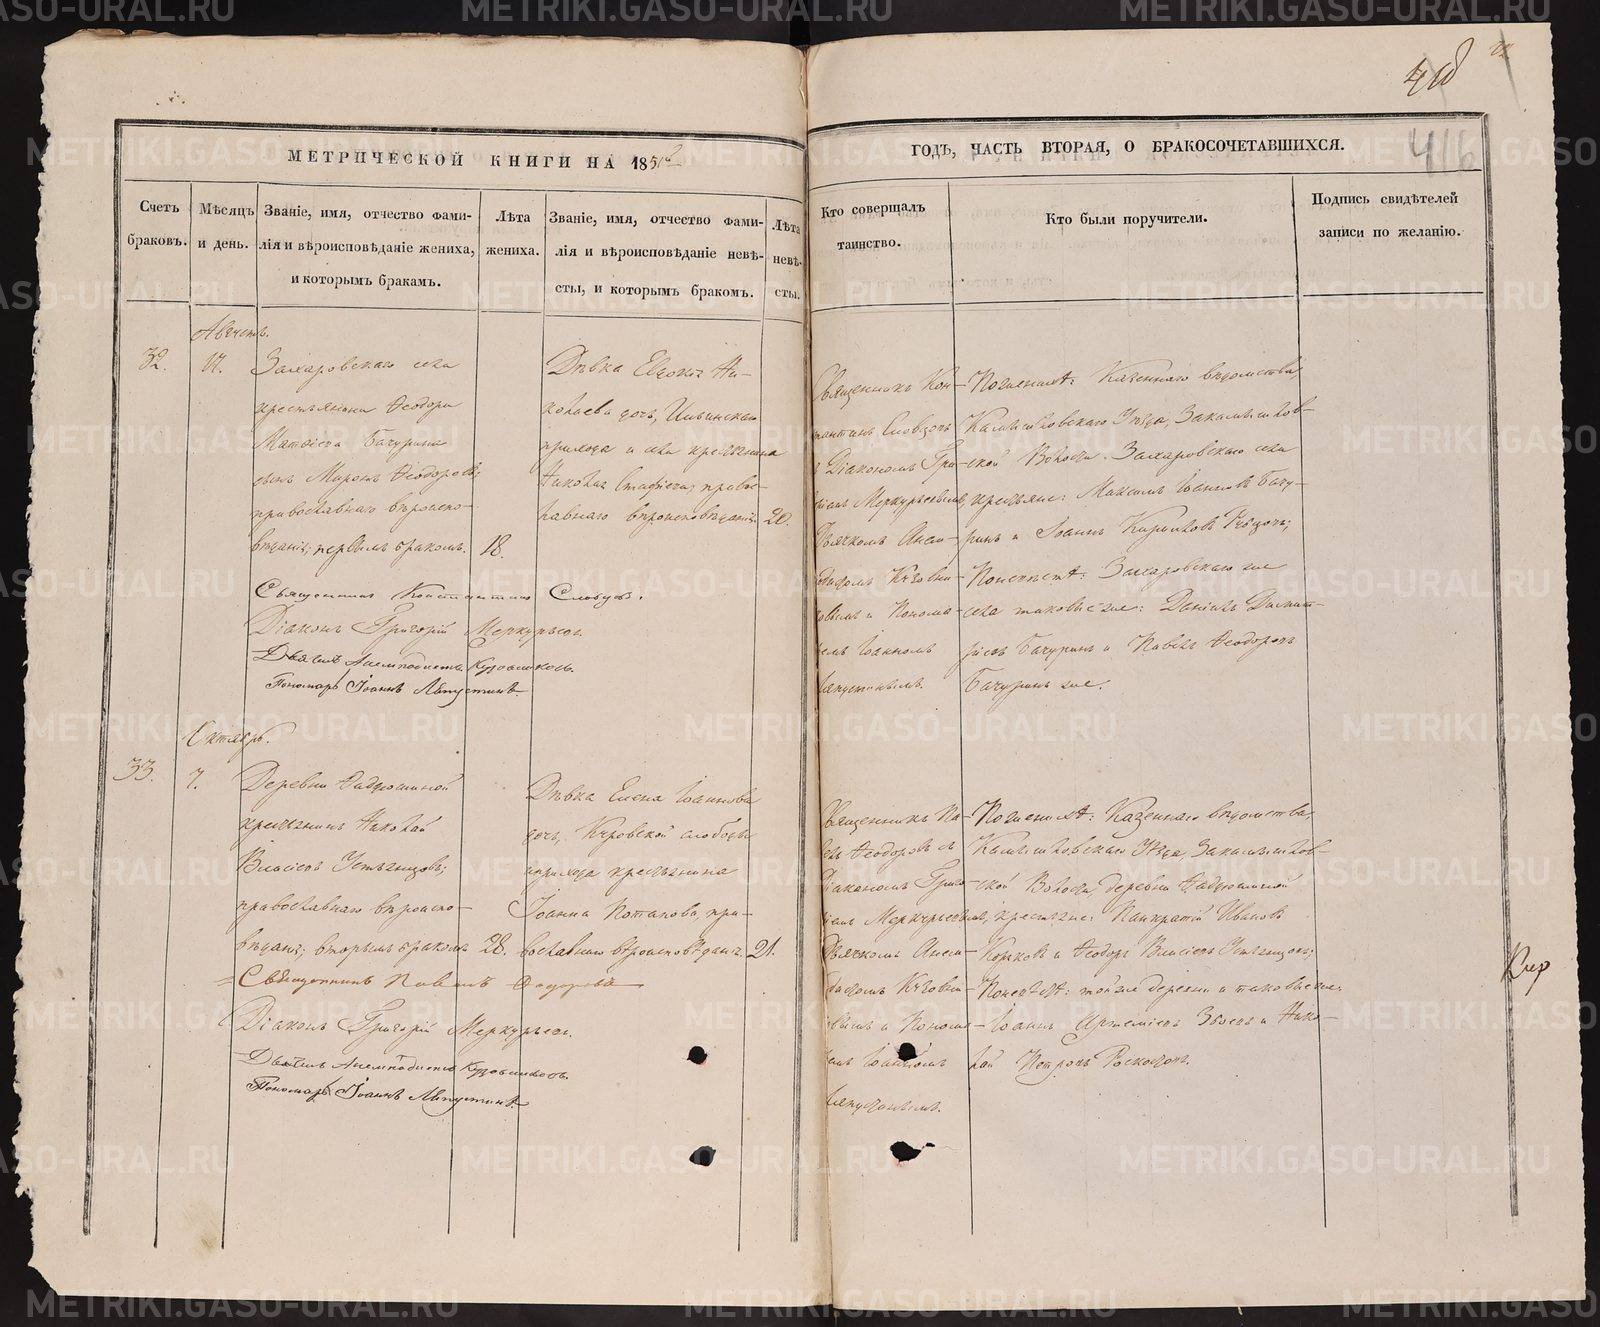 418
416
МЕТРИЧЕСКОЙ КНИГИ НА 1852
ГОДЪ, ЧАСТЬ ВТОРАЯ, О БРАКОСОЧЕТАВШИХСЯ.
Счетъ
браковъ.
Мѣсяцъ
и день.
Званіе, имя, отчество фами-
лія и вѣроисповѣданіе жениха,
и которымъ бракамъ.
Лѣта
жениха.
Званіе, имя, отчество фами-
лія и вѣроисповѣданіе невѣ-
сты, и которымъ бракомъ.
Лѣта
невѣ-
сты.
Кто совершалъ
таинство.
Кто были поручители.
Подпись свидѣтелей
записи по желанію.
32.
Августъ.
17.
Захаровскаго села
крестьянина Ѳеодора
Матѳіева Бачурина
сынъ Миронъ Ѳеодоровъ;
православнаго вѣроиспо-
вѣданія; первымъ бракомъ.
18.
Дѣвка Евдокія Ни-
колаева дочь, Ильинскаго
прихода и села крестьянина
Николая православ-
лавнаго вѣроисповѣданія.
20.
Священникъ Кон-
стантинъ Словцовъ
съ Діакономъ Гри-
горіемъ Меркурьевымъ,
Дьячкомъ Анем-
подистомъ Кузовни-
ковымъ и Понома-
ремъ Іоанномъ
Ляпустинымъ.
По женихѣ: Казеннаго вѣдомства,
Камышловскаго Уѣзда, Закамышлов-
ской Волости, Захаровскаго села
крестьяне: Максимъ Іоанновъ Бачу-
ринъ и Іоаннъ Кириловъ
По невѣстѣ: Захаровскаго же
села таковые же: Даніилъ Димит-
ріевъ Бачуринъ и Павелъ Ѳеодоровъ
Бачуринъ же.
Священникъ Константинъ Словцовъ.
Діаконъ Григорій Меркурьевъ.
Дьячекъ Анемподистъ Кузовниковъ.
Пономарь Іоаннъ Ляпустинъ.
33.
Октябрь.
7.
Деревни Ѳадюшиной
крестьянинъ Николай
Власіевъ Устьянцовъ;
православнаго вѣроиспо-
вѣданія; вторымъ бракомъ
28.
Дѣвка Елена Іоаннова
дочь, Куровской слободы
прихода крестьянина
Іоанна Потапова, пра-
вославнаго вѣроисповѣданія.
21.
Священникъ Па-
велъ Ѳеодоровъ съ
Діакономъ Григо-
ріемъ Меркурьевымъ,
Дьячкомъ Анем-
подистомъ Кузовни-
ковымъ и Понома-
ремъ Іоанномъ
Ляпустинымъ.
По женихѣ: Казеннаго вѣдомства,
Камышловскаго Уѣзда, Закамышлов-
ской Волости, деревни Ѳадюшиной
крестьяне: Панкратій Ивановъ
Коржовъ и Ѳеодоръ Власіевъ Устьянцовъ;
По невѣстѣ: той же деревни и таковые же,
Іоаннъ Артеміевъ Зуевъ и Нико-
лай Петровъ
Священникъ Павелъ Ѳедоровъ
Діаконъ Григорій Меркурьевъ.
Дьячекъ Анемподистъ Кузовниковъ.
Пономарь Іоаннъ Ляпустинъ.
METRIKI.GASO-URAL.RU